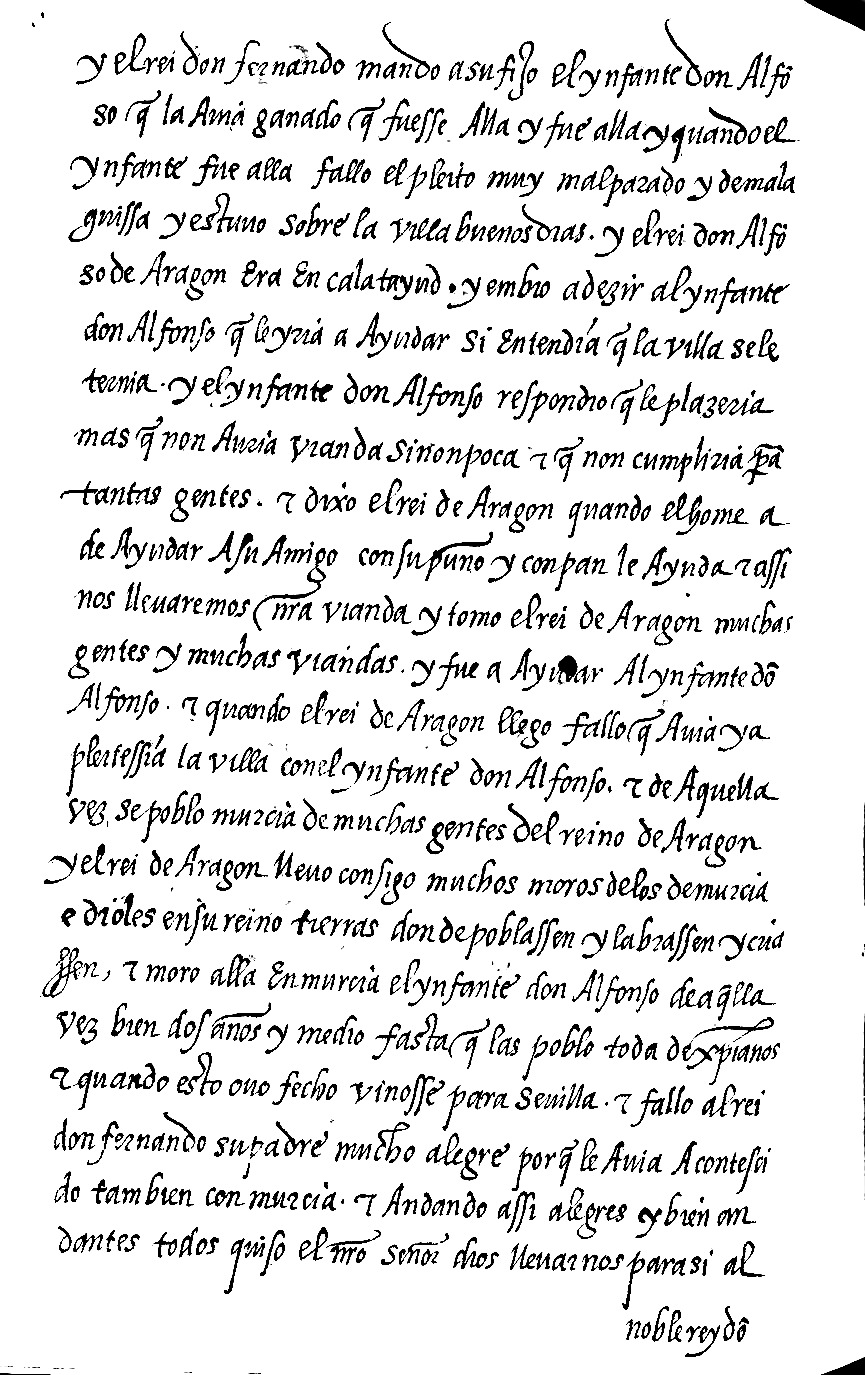 y el rei don fernando mando a su fijo el ynfante don Alfō
so q̃ la Auia ganado q̃ fuesse Alla y fue alla y quando el
ynfante fue alla fallo el pleito muy malparado y de mala
guissa y estuuo sobre la villa buenos dias. y el rei don Alfō
so de Aragon Era En calatayud. y embio a dezir al ynfante
don Alfonso q̃ le yria a Ayudar si Entendia q̃ la villa se le
ternia. y el ynfante don Alfonso respondio q̃ le plazeria
mas q̃ non Auria vianda sinon poca ⁊ q̃ non cumpliria pã
tantas gentes. ⁊ dixo el rei de Aragon quando el home a
de Ayudar A su Amigo con su puño y con pan le Ayuda ⁊ assi
nos lleuaremos nr̃a vianda y tomo el rei de Aragon muchas
gentes y muchas viandas. y fue a Ayudar Al ynfante dō
Alfonso. ⁊ quando el rei de Aragon llego fallo q̃ Auia ya
pleitessia la villa con el ynfante don Alfonso. ⁊ de Aquella
vez se poblo murcia de muchas gentes del reino de Aragon
y el rei de Aragon lleuo consigo muchos moros de los de murcia
e dióles en su reino tierras donde poblassen y labrassen y cria
ssen, ⁊ moro alla En murcia el ynfante don Alfonso de aq̃lla
vez bien dos años y medio fasta q̃ las poblo toda de xp̃ianos
⁊ quando esto ouo fecho vinosse para Seuilla. ⁊ fallo al rei
don fernando su padre mucho alegre porq̃ le Auia Acontesci
do tambien con murcia. ⁊ Andando assi alegres y bien an
dantes todos quiso el nr̃o señor dios lleuarnos para si al
noble rey dō